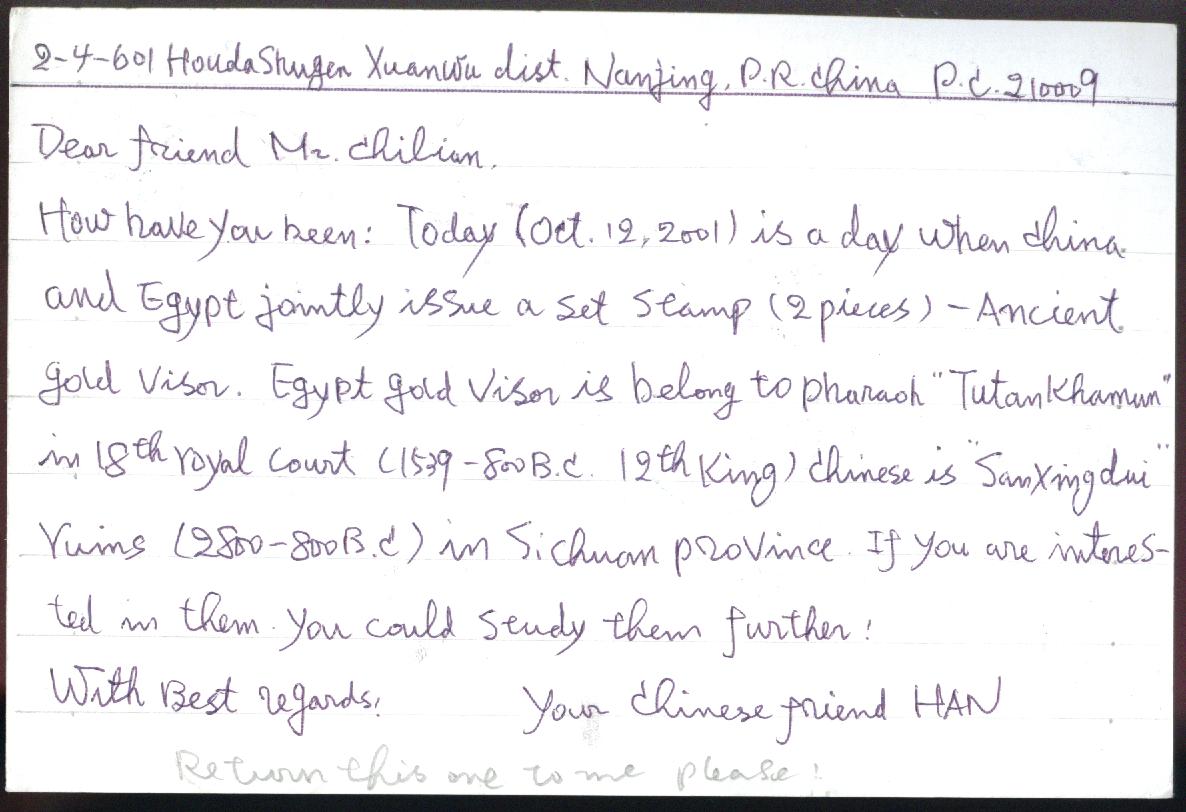 2-4-601 HoudaShugen Xuanwu dist. Nanjing, P.R. China P.C. 210009
Dear friend Mr. Chilian.
How have you been: Today (Oct. 12, 2001) is a day when China
and Egypt jointly issue a set stamp (2 pieces) - Ancient
gold visor. Egypt gold visor is belong to pharaoh "Tutankhamun"
in 18th royal court (1539-800 B.C. 12th King) Chinese is "SanXingdui"
ruins (2800-800B.C) in Sichuan province. If you are interes-
ted in them. You could study them further!
With Best regards! Your Chinese friend HAN
Return this one to me please!